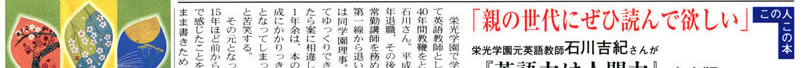 この人
この本
「親の世代にぜひ読んで欲しい」
栄光学園元英語教師石川吉紀さんが
栄光学園で学
て英語教師とし
40年間教鞭をと
石川さん。平成
年退職、その後
常勤講師を務め
第一線から退い
は同学園理事。
てゆっくりでき
たら案に相違し
1年余は、本の
成にかかりっき
となってしまっ
と苦笑する。
その元となっ
15年ほど前から
で感じたことを
まま書きため